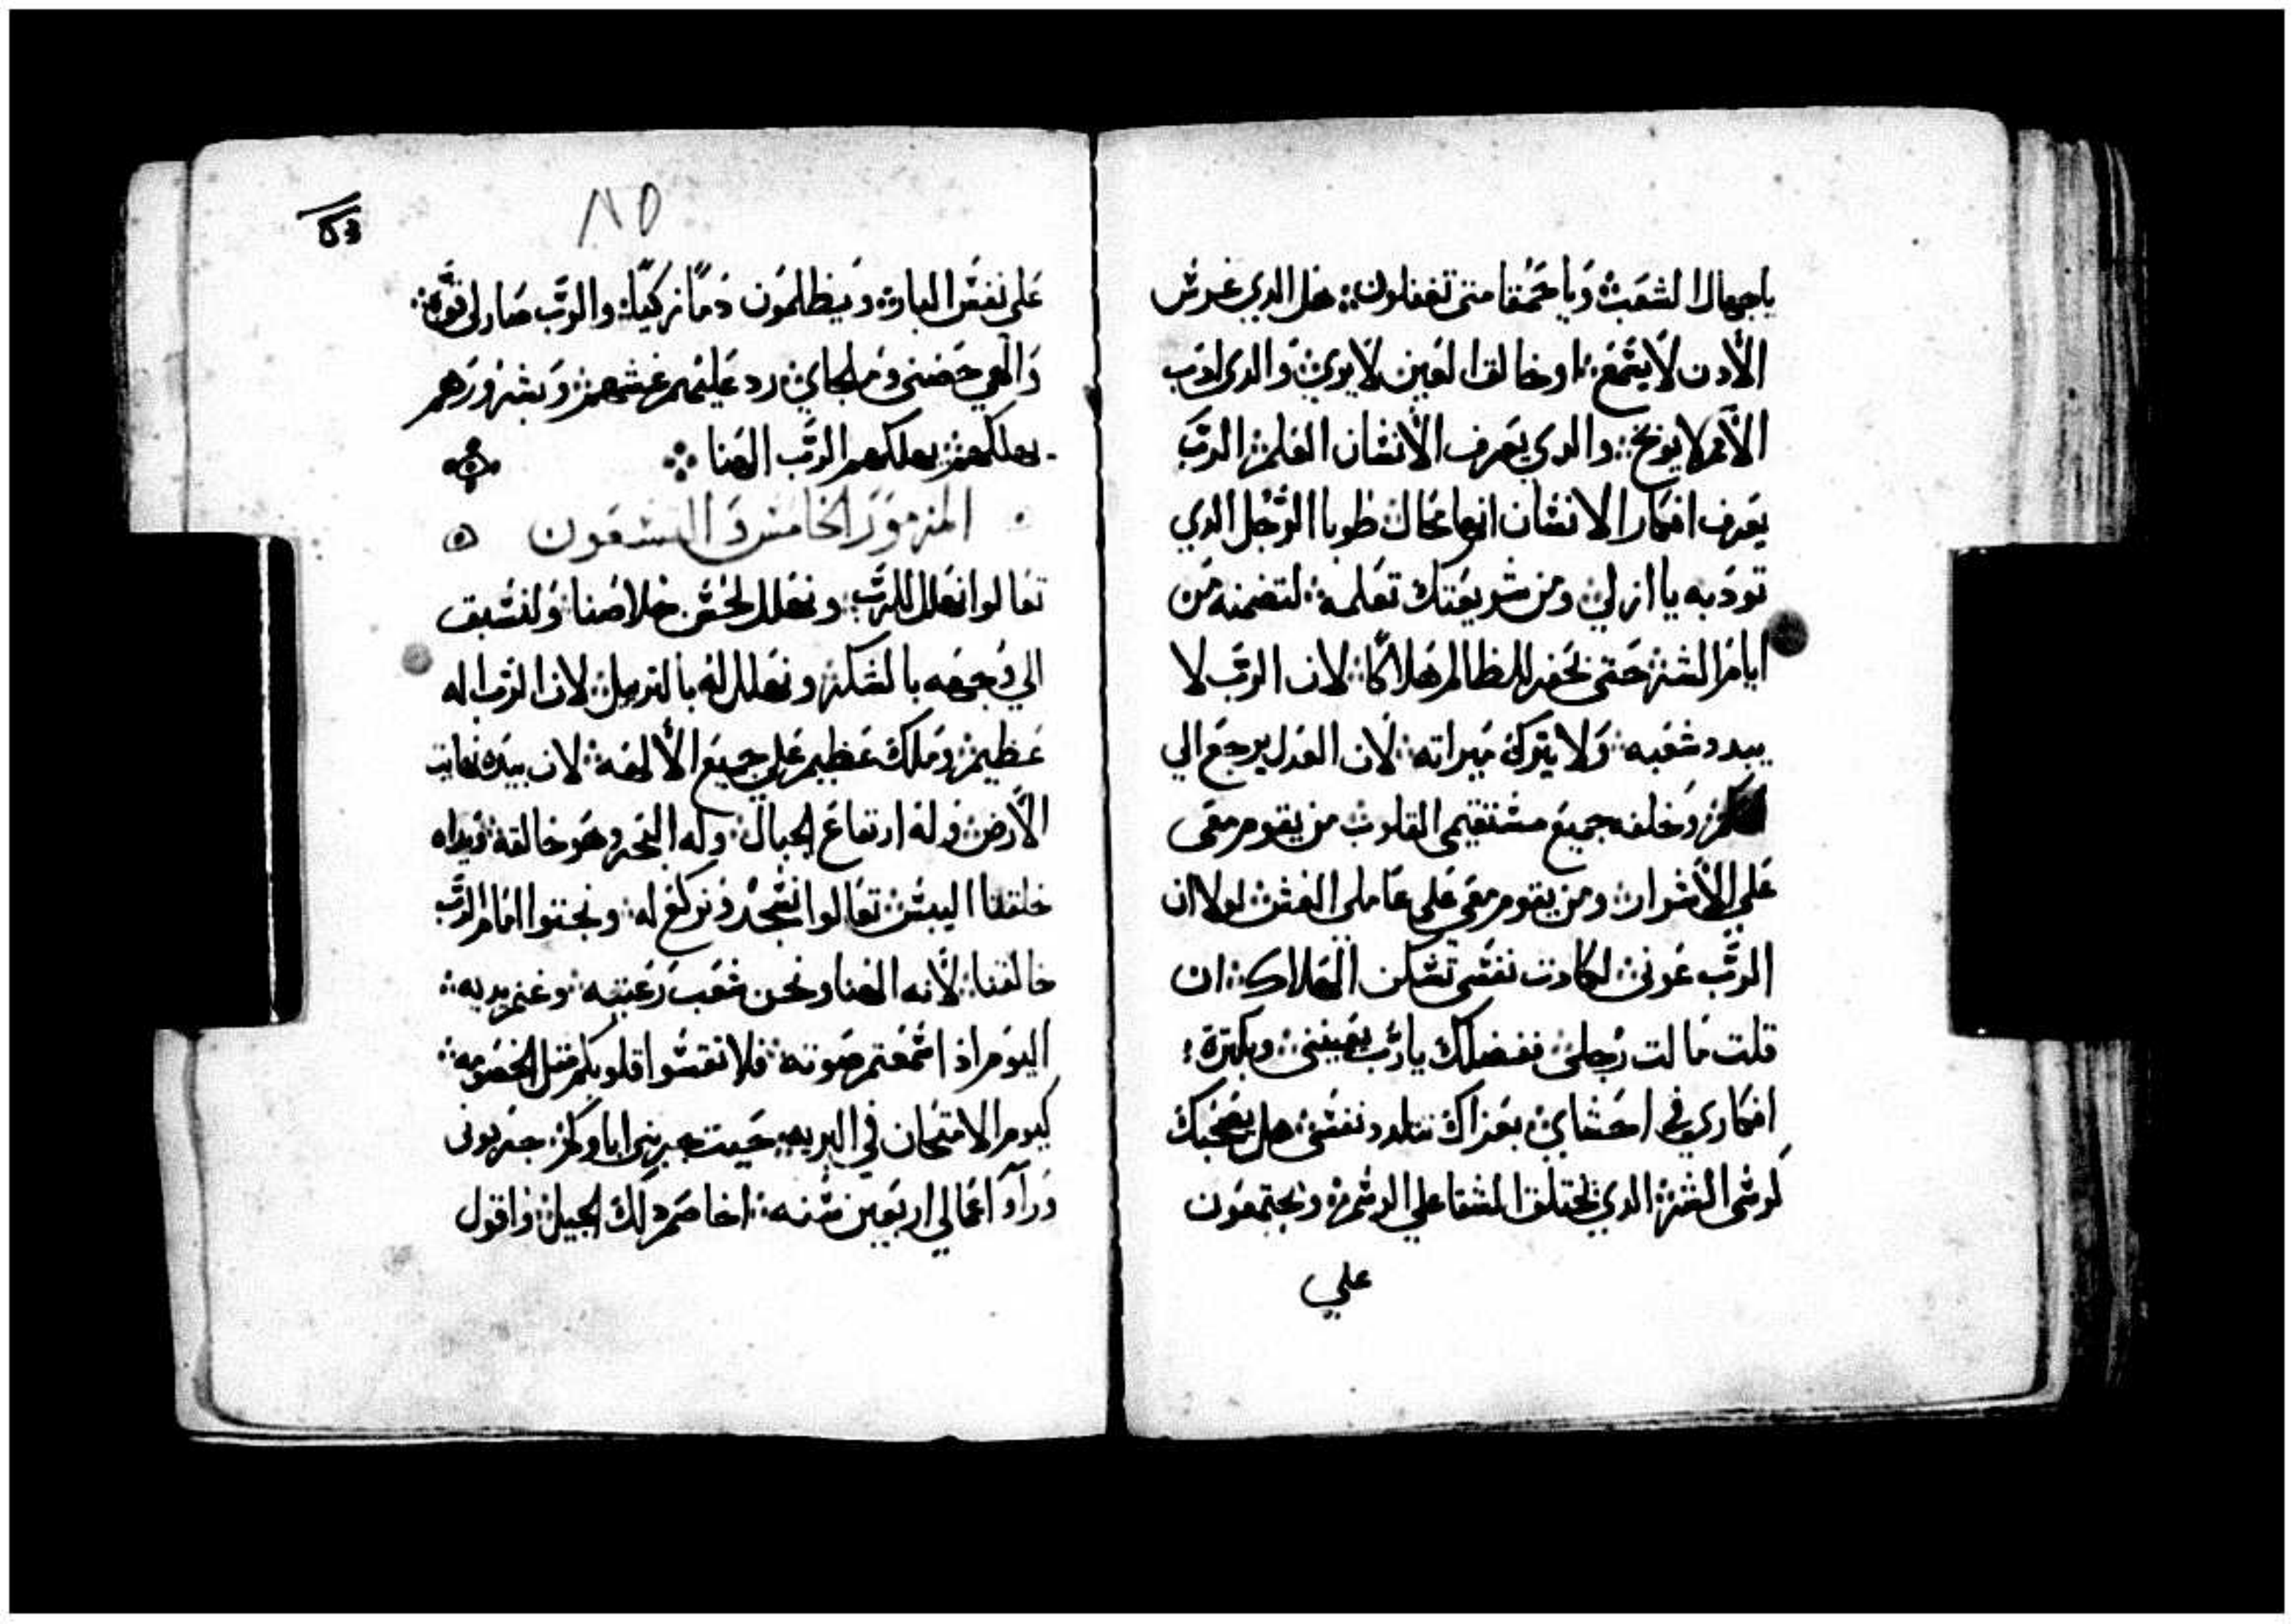 ياجهال الشعب وياحمقا متي تعقلون هل الدي غرس
الأدن لايسمع او خالق العين لايري والدي ادب
الأمم لا يوبخ والدي يعرف الأنسان العلم الرب
يعرف افكار الانسان انها محال طوبا الرجل الدي
تودبه يا ازلي ومن شريعتك تعلمه لتضمنه من
ايام الشر حتي تحفر للظالم هلاكا لان الرب لا
يبدد شعبه ولا يترك ميراته لان العدل يرجع الي
وخلفه جميع مستقيمي القلوب من يقوم معي
علي الأشرار ومن يقوم معي علي عاملي الغش لولا ان
الرب عوني لكادت نفسي تسكن الهلاك ان
قلت مالت رجلي ففضلك يارب يعينني وبكترة
افكاري في احشاي بعزاك تتلدد نفسي هل يصحبك
كرسي الشر الدي يختلق الشقا علي الرسم ويجتمعون
علي
٨٥
علي نفس البار ويظلمون دما زكيا والرب صار لي قوة
والهي حصني وملجاي رد عليهم غشهم وبشرورهم
يهلكهم يهلكهم الرب الهنا
المزمور الخامس و التسعون
تعالوا نهلل للرب ونهلل لحسن خلاصنا ولنسبق
الي وجهه بالشكر ونهلل له بالترتيل لان الرب اله
عظيم وملك عظيم علي جميع الألهه لان بيده نهايت
الأرض وله ارتفاع الجبال وله البحر وهو خالقه ويداه
خلقتا اليبس تعالوا نسجد ونركع له ونجتوا امام الرب
خالقنا لأنه الهنا ونحن شعب رعيته وغنم يديه
اليوم اذ اسمعتم صوته فلا تقسوا قلوبكم مثل الخصومه
كيوم الامتحان في البريه حيت جربني اباوكم جربوني
وراوا اعمالي اربعين سنه اخاصم دلك الجيل واقول